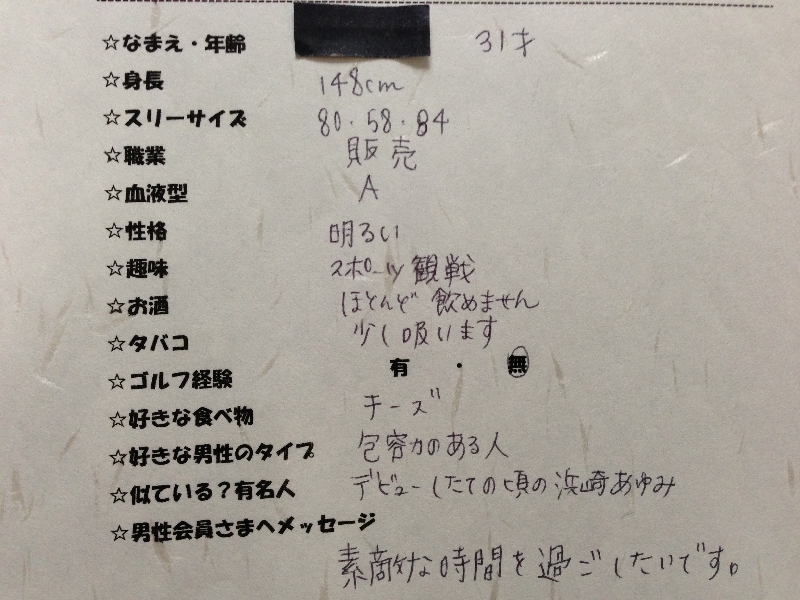 ☆なまえ・年齢 31才
☆身長 148cm
☆スリーサイズ 80.58.84
☆職業 販売
☆血液型 A
☆性格 明るい
☆趣味 スポーツ観戦
☆お酒 ほとんど飲めません
☆タバコ 少し吸います
☆ゴルフ経験 有・無
☆好きな食べ物 チーズ
☆好きな男性のタイプ 包容力のある人
☆似ている?有名人 デビューしたての頃の浜崎あゆみ
☆男性会員さまへメッセージ
素敵な時間を過ごしたいです。